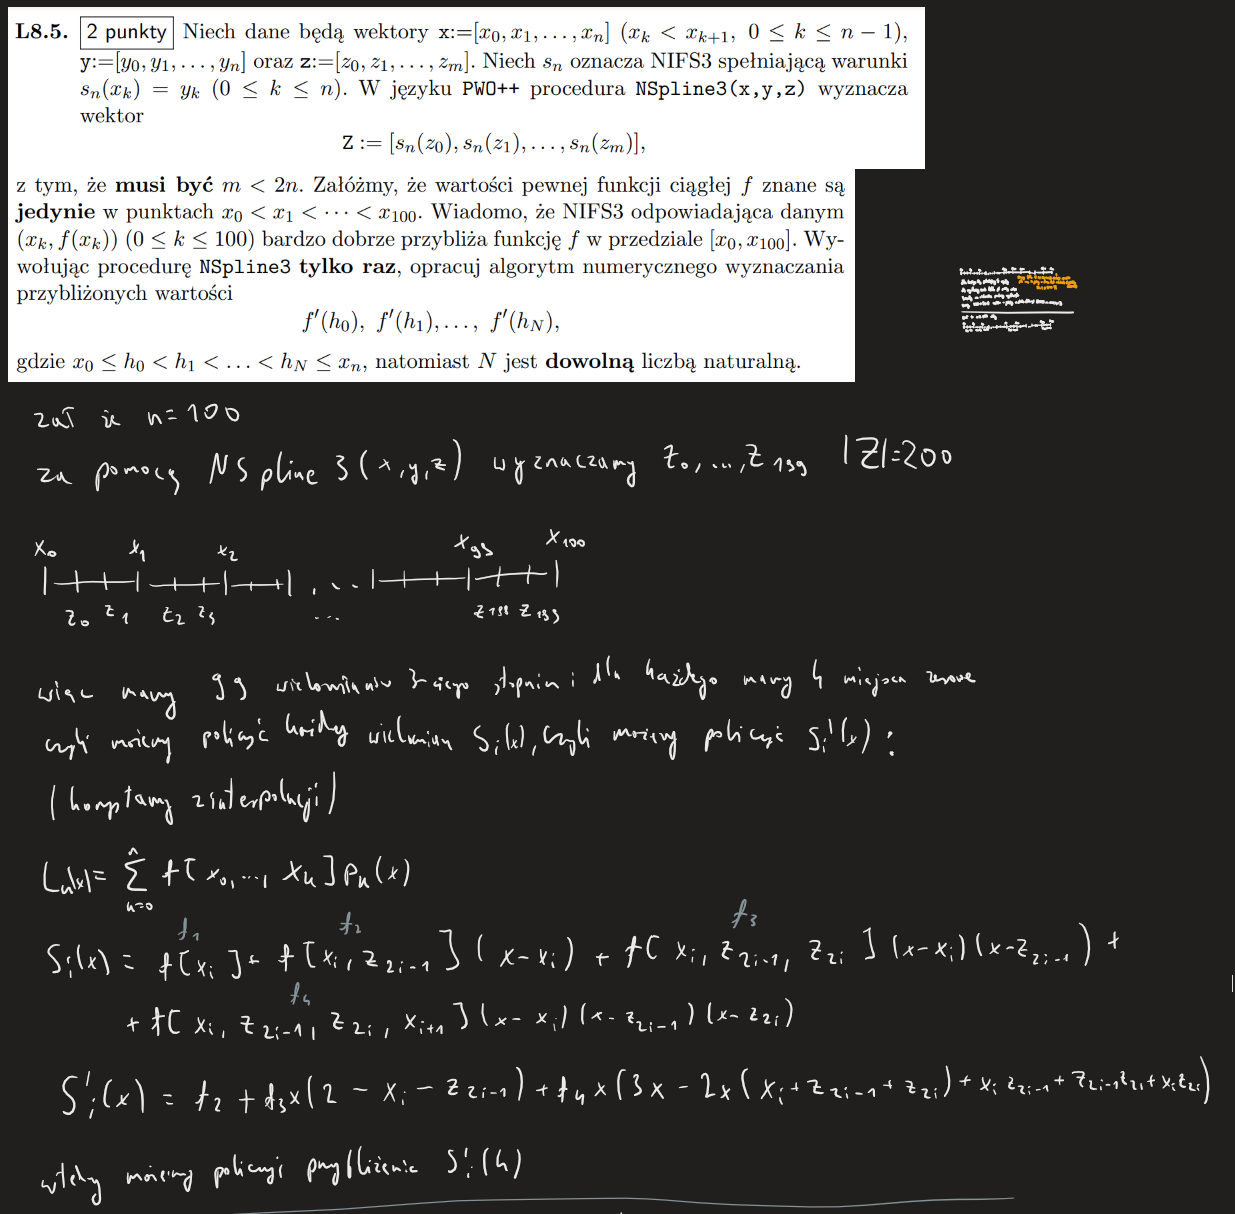 L8.5. 2 punkty Niech dane będą wektory x:=[x₀, x₁, . . . , xₙ] (xₖ < xₖ₊₁, 0 ≤ k ≤ n − 1),
y:=[y₀, y₁, . . . , yₙ] oraz z:=[z₀, z₁, . . . , zₘ]. Niech sₙ oznacza NIFS3 spełniającą warunki
sₙ(xₖ) = yₖ (0 ≤ k ≤ n). W języku PWO++ procedura NSpline3(x,y,z) wyznacza
wektor
Z := [sₙ(z₀), sₙ(z₁), . . . , sₙ(zₘ)],
z tym, że musi być m < 2n. Załóżmy, że wartości pewnej funkcji ciągłej f znane są
jedynie w punktach x₀ < x₁ < · · · < x₁₀₀. Wiadomo, że NIFS3 odpowiadająca danym
(xₖ, f(xₖ)) (0 ≤ k ≤ 100) bardzo dobrze przybliża funkcję f w przedziale [x₀, x₁₀₀]. Wy-
wołując procedurę NSpline3 tylko raz, opracuj algorytm numerycznego wyznaczania
przybliżonych wartości
f′(h₀), f′(h₁), . . . , f′(h_N),
gdzie x₀ ≤ h₀ < h₁ < . . . < h_N ≤ xₙ, natomiast N jest dowolną liczbą naturalną.
zał że n=100
za pomocą NSpline3(x,y,z) wyznaczamy z₀,...,z₁₉₉ |Z|=200
x₀ x₁ x₂ x₉₉ x₁₀₀
. . .
z₀ z₁ z₂ z₃ ... z₁₉₈ z₁₉₉
więc mamy 99 wielomianów 3-ciego stopnia i dla każdego mamy 4 miejsca zerowe
czyli możemy policzyć każdy wielomian Sᵢ(x), czyli możemy policzyć Sᵢ'(x) :
(korzystamy z interpolacji)
Lₙ(x)= Σ f[x₀,...,xₖ]pₖ(x)
n
k=0
f₁ f₂ f₃
Sᵢ(x) = f[xᵢ]+ f[xᵢ, z₂ᵢ₋₁](x-xᵢ) + f[xᵢ, z₂ᵢ₋₁, z₂ᵢ](x-xᵢ)(x-z₂ᵢ₋₁) +
f₄
+ f[xᵢ, z₂ᵢ₋₁, z₂ᵢ, xᵢ₊₁](x-xᵢ)(x-z₂ᵢ₋₁)(x-z₂ᵢ)
S'ᵢ(x) = f₂ + f₃x(2 - xᵢ - z₂ᵢ₋₁) + f₄x(3x - 2x(xᵢ+z₂ᵢ₋₁+z₂ᵢ) + xᵢz₂ᵢ₋₁ + z₂ᵢ₋₁z₂ᵢ + xᵢz₂ᵢ)
wtedy możemy policzyć przybliżenie S'ᵢ(h)